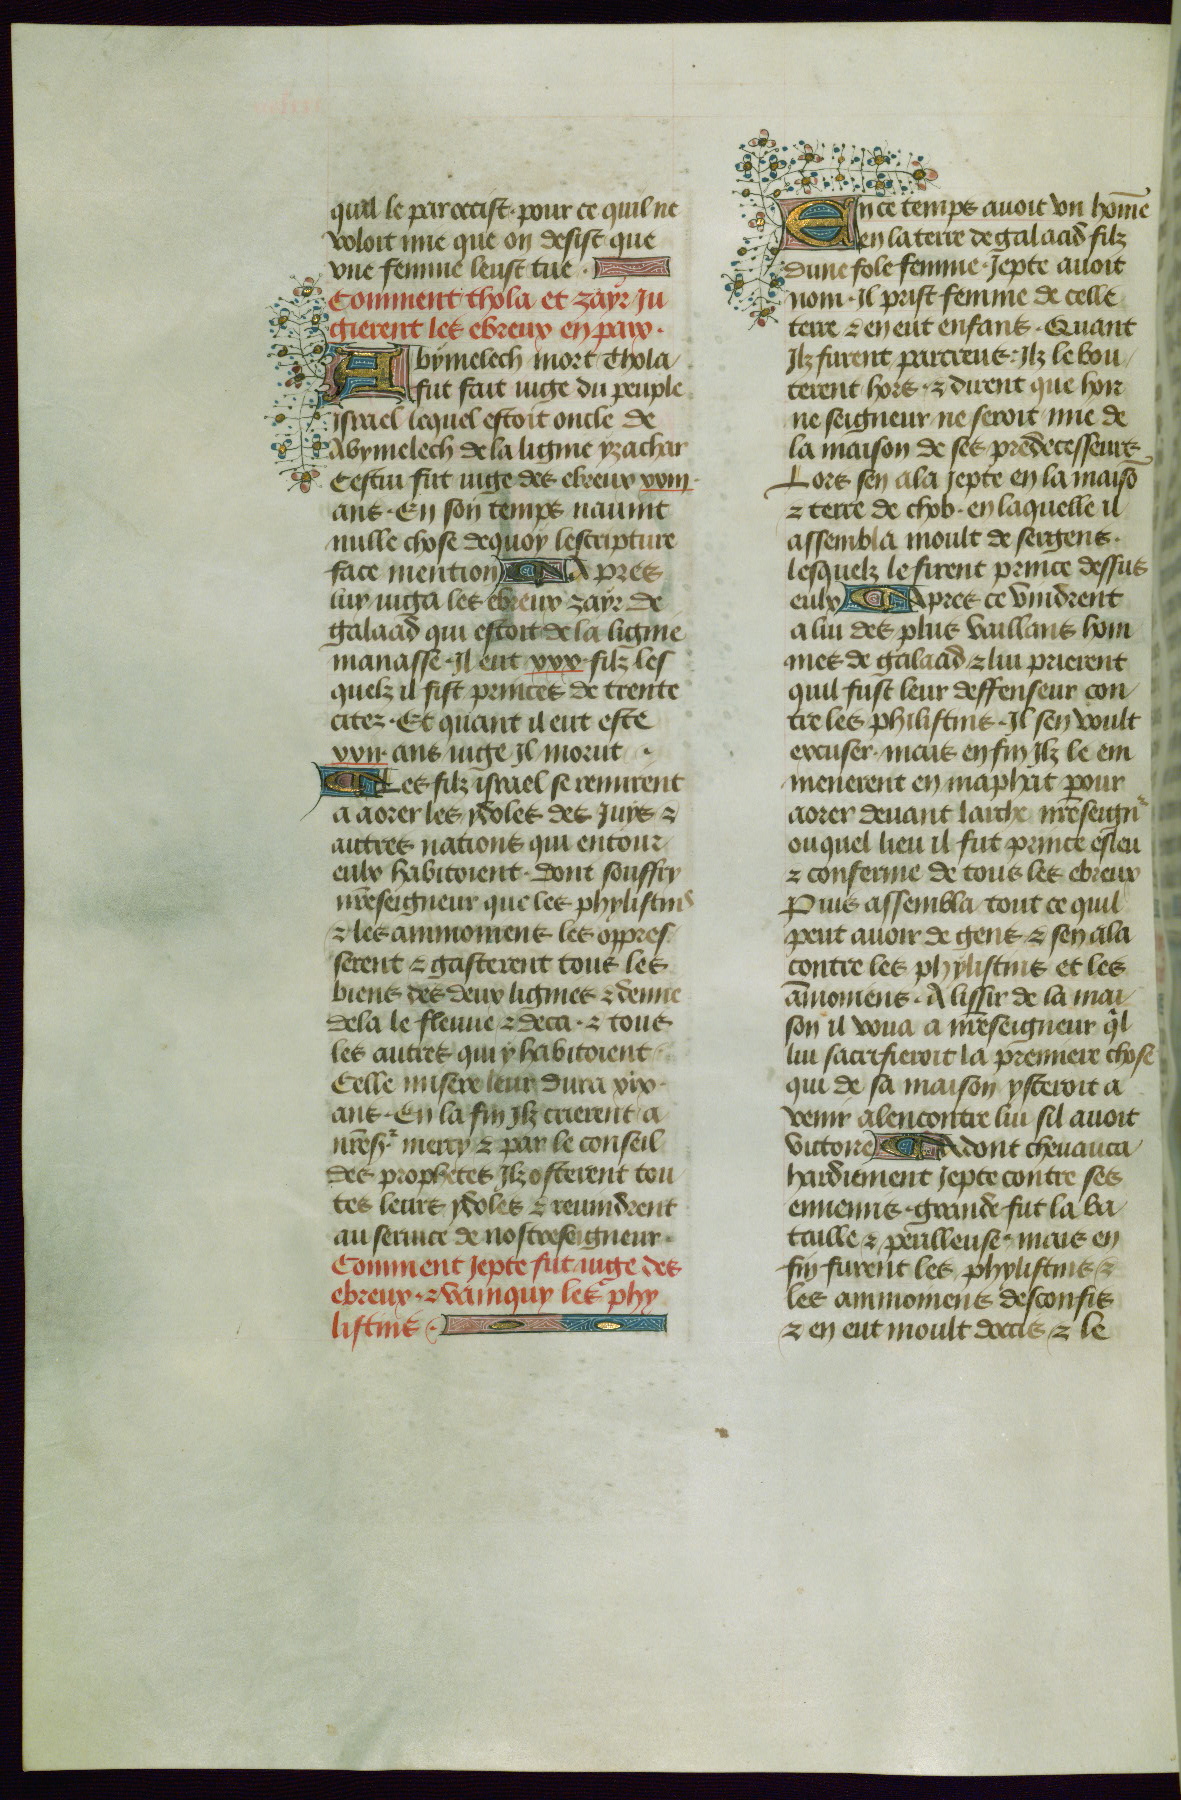 qual le par occist · pour ce quil ne
voloit mie que on desist que
vne femme leust tue ·
Comment thola et zayr iu
gierent les ebreux en paix ·
Abymelech mort Thola
fut fait iuge du peuple
israel lequel estoit oncle de
Abymelech de la lignie yzachar
Cestui fut iuge des ebreux xxiii ·
ans · En son temps nauint
nulle chose dequoy lescripture
face mention Apres
luy iuga les ebreux zayr de
galaad qui estoit de la lignie
manasse · Il eut xxx · filz les
quelz il fist princes de trente
citez · Et quant il eut este
xxii · ans iuge Il morut ·
Les filz israel se remirent
a aorer les ydoles des Juys ⁊
autres nations qui entour
eulx habitoient · dont souffry
nr̄eseigneur que les phylistins
⁊ les ammoniens les oppres
serent ⁊ gasterent tous les
biens des deux lignies ⁊ demie
dela le fleuue ⁊ deca · ⁊ tous
les autres qui y habitoient
Celle misere leur dura xix ·
ans · En la fin Ilz crierent a
nr̄es^r mercy ⁊ par le conseil
des prophetes Ilz osterent tou
tes leurs ydoles ⁊ reuindrent
au seruice de nostreseigneur ·
Comment Jepte fut iuge des
ebreux · ⁊ vainquy les phy
listins ·
En ce temps auoit vn hom̄e
en la terre de galaad filz
dune fole femme · Jepte auoit
nom · il prist femme de celle
terre ⁊ en eut enfans · Quant
Ilz furent parcreus : Ilz le bou
terent hors · ⁊ dirent que hon
ne seigneur ne seroit mie de
la maison de ses predecesseurs
Lors sen ala Jepte en la maisō
⁊ terre de chob · en laquelle il
assembla moult de sergens ·
lesquelz le firent prince dessus
eulx Apres ce vindrent
a lui des plus vaillans hom
mes de galaad ⁊ lui prierent
quil fust leur deffenseur con
tre les philistins · Il sen voult
excuser · mais en fin Ilz le em
menerent en maphat pour
aorer deuant larche nr̄eseign^r
ouquel lieu il fut prince esleu
⁊ conferme de tous les ebreux
Puis assembla tout ce quil
peut auoir de gens ⁊ sen ala
contre les phylistins et les
āmoniens · A lissir de la mai
son il voua a nr̄eseigneur q̄l
lui sacrifieroit la premiere chose
qui de sa maison ysteroit a
venir alencontre lui sil auoit
victoire Adont cheuauca
hardiement Jepte contre ses
ennemis · grande fut la ba
taille ⁊ perilleuse · mais en
fin furent les phylistins ⁊
les ammoniens desconfis
⁊ en eut moult doccis ⁊ le